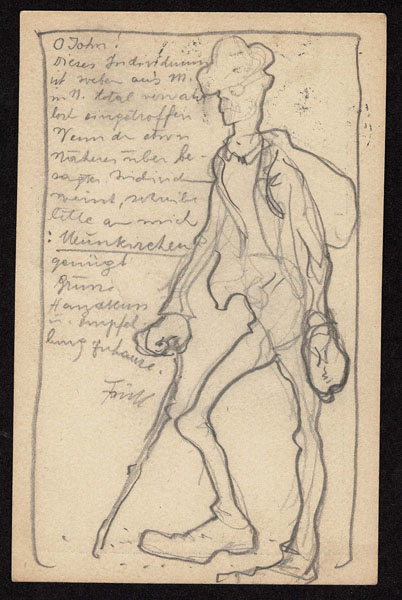 O John!
Dieses Individuum
ist soeben aus M.
in N. total verwahr
lost eingetroffen
Wenn du etwas
Näheres über be-
sagtes Individ
weisst, schreibe
bitte an mich
: Neunkirchen
genügt
Grüsse
Handkuss
u. Empfeh
lung zuhause.